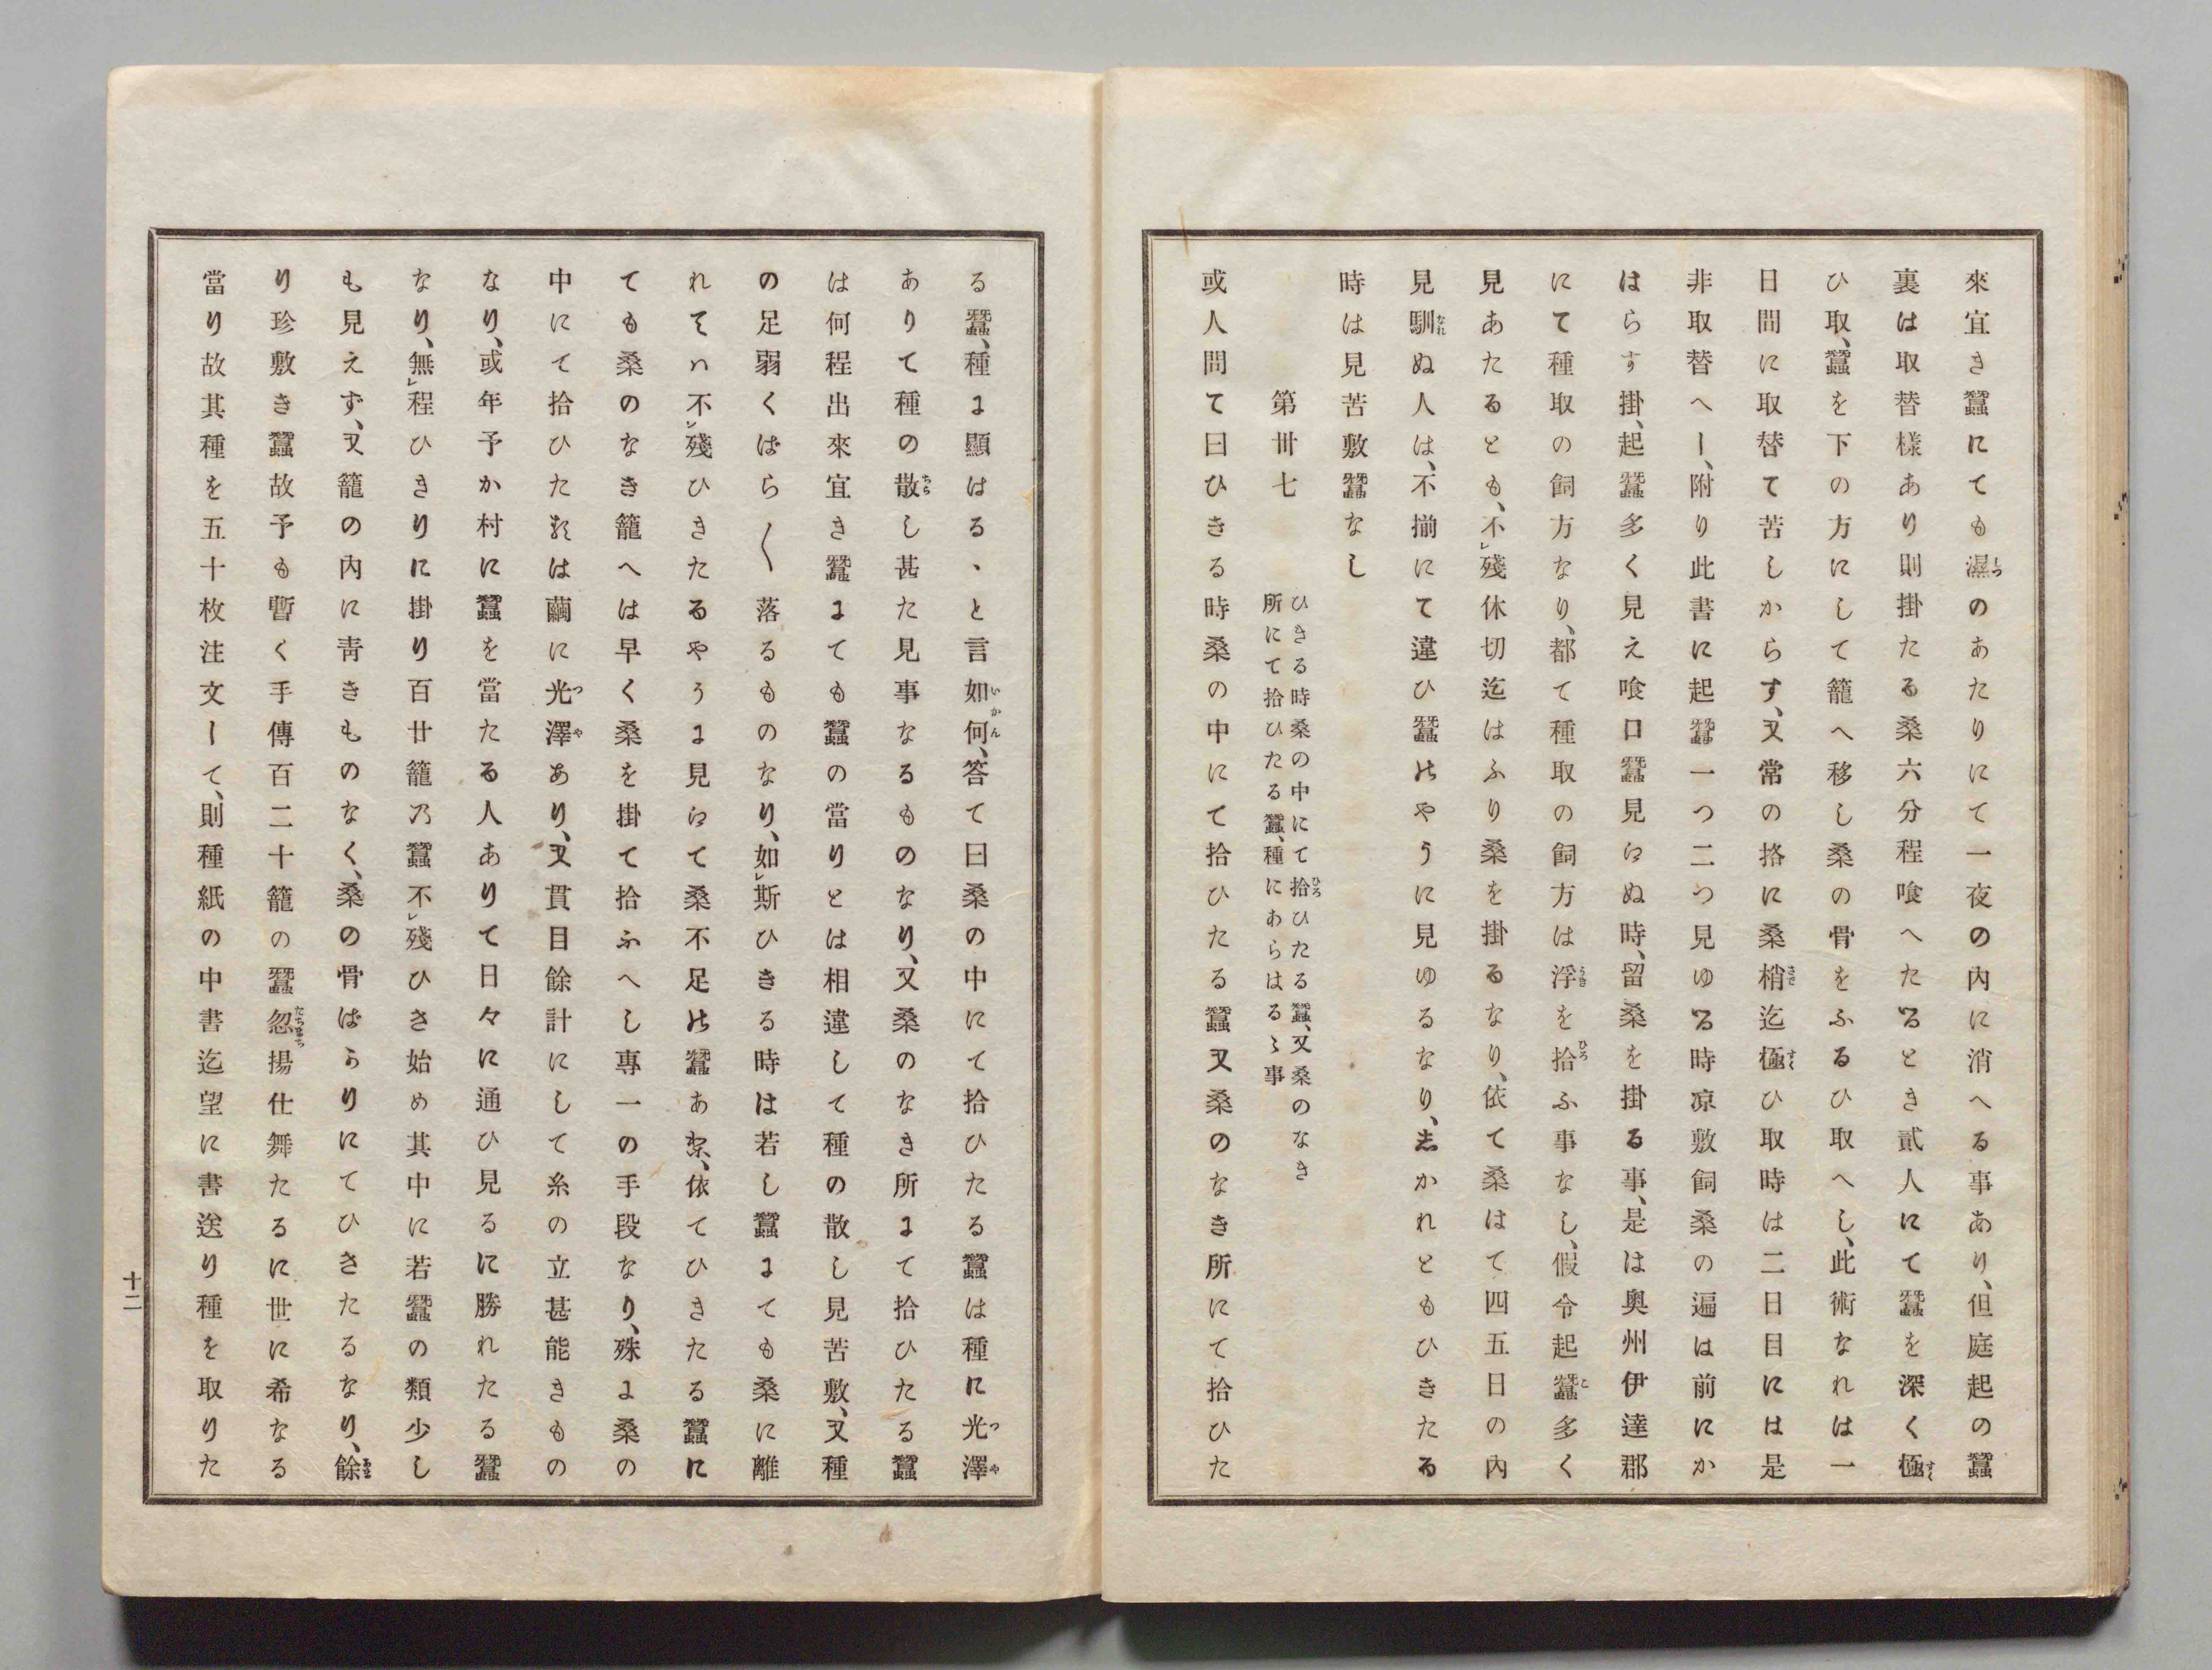 來宜き蠶にても濕のあたりにて一夜の內に消へる事あり、但庭起の蠶
裏は取替樣あり則掛たる桑六分程喰へたるとき貳人にて蠶を深く極
ひ取、蠶を下の方にして籠へ移し桑の骨をふるひ取へし、此術なれは一
日間に取替て苦しからす、又常の挌に桑梢迄極ひ取時は二日目には是
非取替へし、附り此書に起蠶一つ二つ見ゆる時凉敷飼桑の遍は前にか
はらす掛、起蠶多く見え喰口蠶見えぬ時、留桑を掛る事、是は奥州伊達郡
にて種取の飼方なり、都て種取の飼方は浮を拾ふ事なし、假令起蠶多く
見あたるとも、不レ殘休切迄はふり桑を掛るなり、依て桑はて四五日の內
見馴ぬ人は、不揃にて違ひ蠶のやうに見ゆるなり、志かれともひきたる
時は見苦敷蠶なし
第卅七
ひきる時桑の中にて拾ひたる蠶、又桑のなき
所にて拾ひたる蠶、種にあらはるゝ事
或人問て曰ひきる時桑の中にて拾ひたる蠶又桑のなき所にて拾ひた
る蠶、種に顯はるゝと言如何、答て曰桑の中にて拾ひたる蠶は種に光澤
ありて種の散し甚た見事なるものなり、又桑のなき所にて拾ひたる蠶
は何程出來宜き蠶にても蠶の當りとは相違して種の散し見苦敷、又種
の足弱くばら〱落るものなり、如レ斯ひきる時は若し蠶にても桑に離
れてハ不レ殘ひきたるやうに見えて桑不足の蠶あり、依てひきたる蠶に
ても桑のなき籠へは早く桑を掛て拾ふへし專一の手段なり、殊に桑の
中にて拾ひたるは繭に光澤あり、又貫目餘計にして糸の立甚能きもの
なり、或年予か村に蠶を當たる人ありて日々に通ひ見るに勝れたる蠶
なり、無レ程ひきりに掛り百廿籠乃蠶不レ殘ひき始め其中に若蠶の類少し
も見えず、又籠の內に靑きものなく、桑の骨ばかりにてひきたるなり、餘
り珍敷き蠶故予も暫く手傳百二十籠の蠶忽揚仕舞たるに世に希なる
當り故其種を五十枚注文して、則種紙の中書迄望に書送り種を取りた
十二